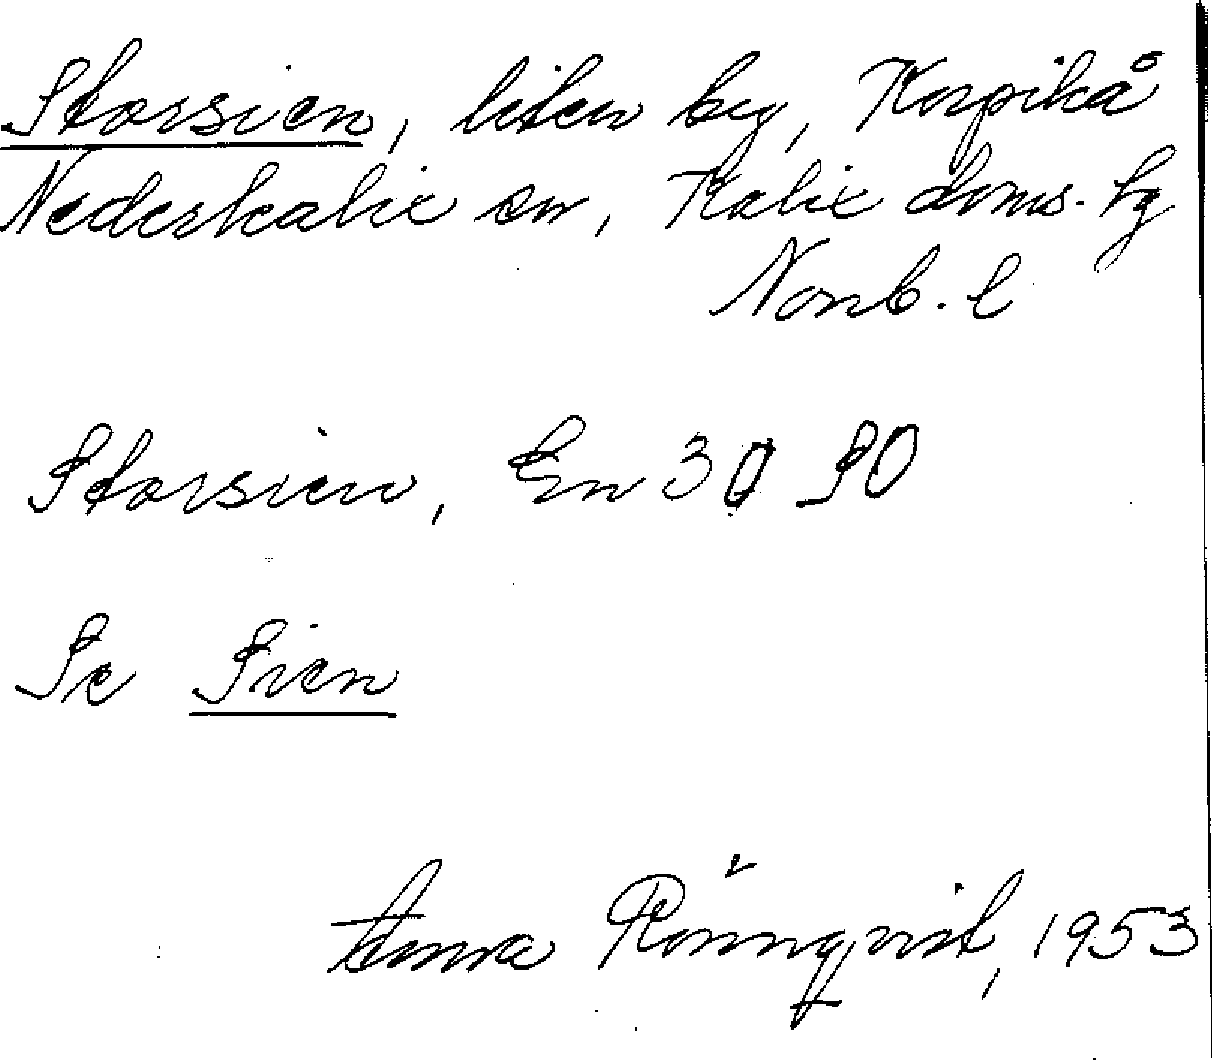 Storsien, liten by, Korpikå
Nederkalix sn, Kalix doms. hg
Norrb. l
Storsien, En 30 SO
Se Sien
Anna Rönnqvist, 1953